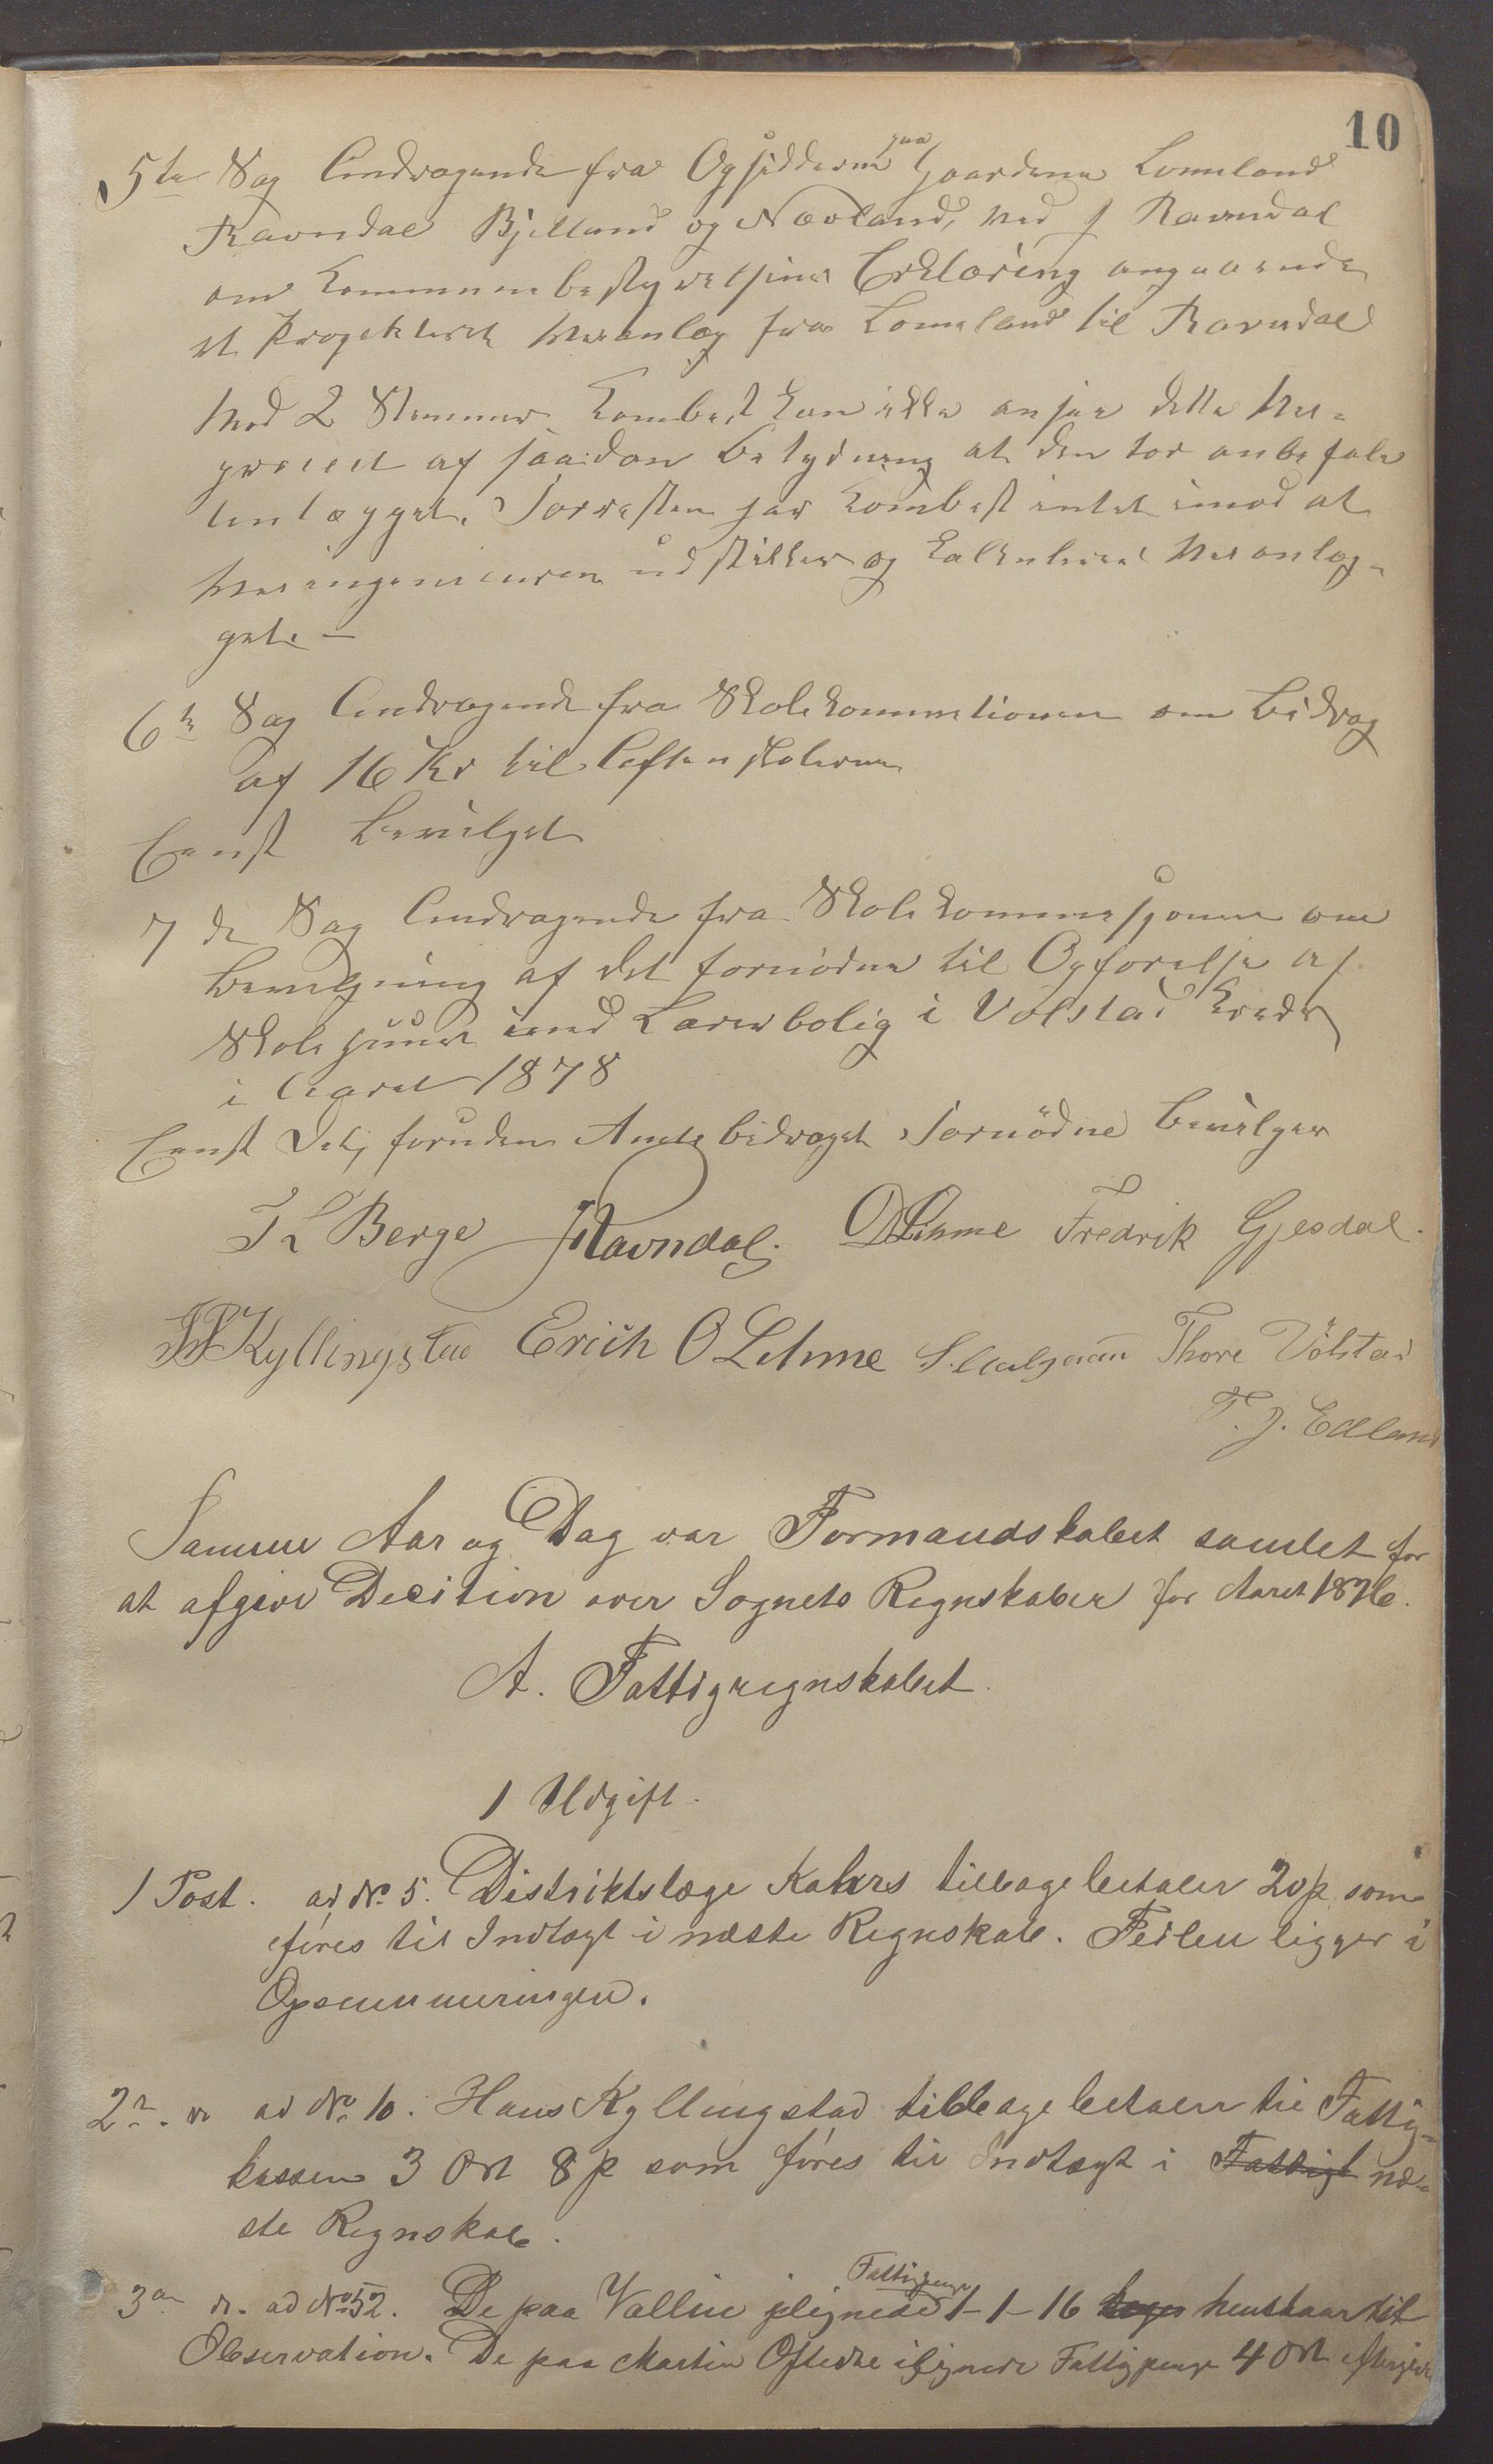 10
5te Sag Andragende fra Opsidderne paa Gaardene Lomeland
Ravndal Bjelland og Nævland, ved J Ravndal
om Kommunebestyrelsens Erklæring angaaende
et Projekteret Veianlæg fra Lomeland til Ravndal
Mod 2 Stemmer. Kombest kan ikke ansee dette Vei-
project af saadan Betydning at den tør anbefale
Anlægget. Forresten har Kombest intet imod at
Veiingenieuren udstikker og kalkulerer Veianlæg-
get. —
6te Sag Andragende fra Skolekommitionen om Bidrag
af 16 Kr til Aftenskolerne
Eenst Bevilget
7 de Sag Andragende fra Skolekommissjonen om
Bevilgning af det fornødne til Opførelse af
Skolehuus med Lærerbolig i Vølstad Kreds
i Aaret 1878
Eenst Det, foruden Amtsbidraget Fornødne Bevilges
T L Berge JRavndal. O Lihme Fredrik Gjesdal.
Kyllingstad Erich O Lihme S. Aalgaard Thore Vølstad
T. J. Edland
Samme Aar og Dag var Formandskabet samlet for
at afgive Decition over Sognets Regnskaber for Aaret 1876.
A. Fattigregnskabet.
1 Udgift.
1 Post. ad No. 5. Distriktslæge Kahrs tilbagebetaler 20 p, som
føres til Indtægt i næste Regnskab. Feilen ligger i
Opsummeringen.
2n. " ad No 10. Hans Kyllingstad tilbagebetaler til Fattig-
kassen 3 Ort 8 p som føres til Indtægt i Fattigt næ-
ste Regnskab.
3n ". ad No 52. De paa Vallin ilignede Fattigpenge 1-1-16 henstaar til
Observation. De paa Martin Oftedal ilignede Fattigpenge 4 Ort eftergives